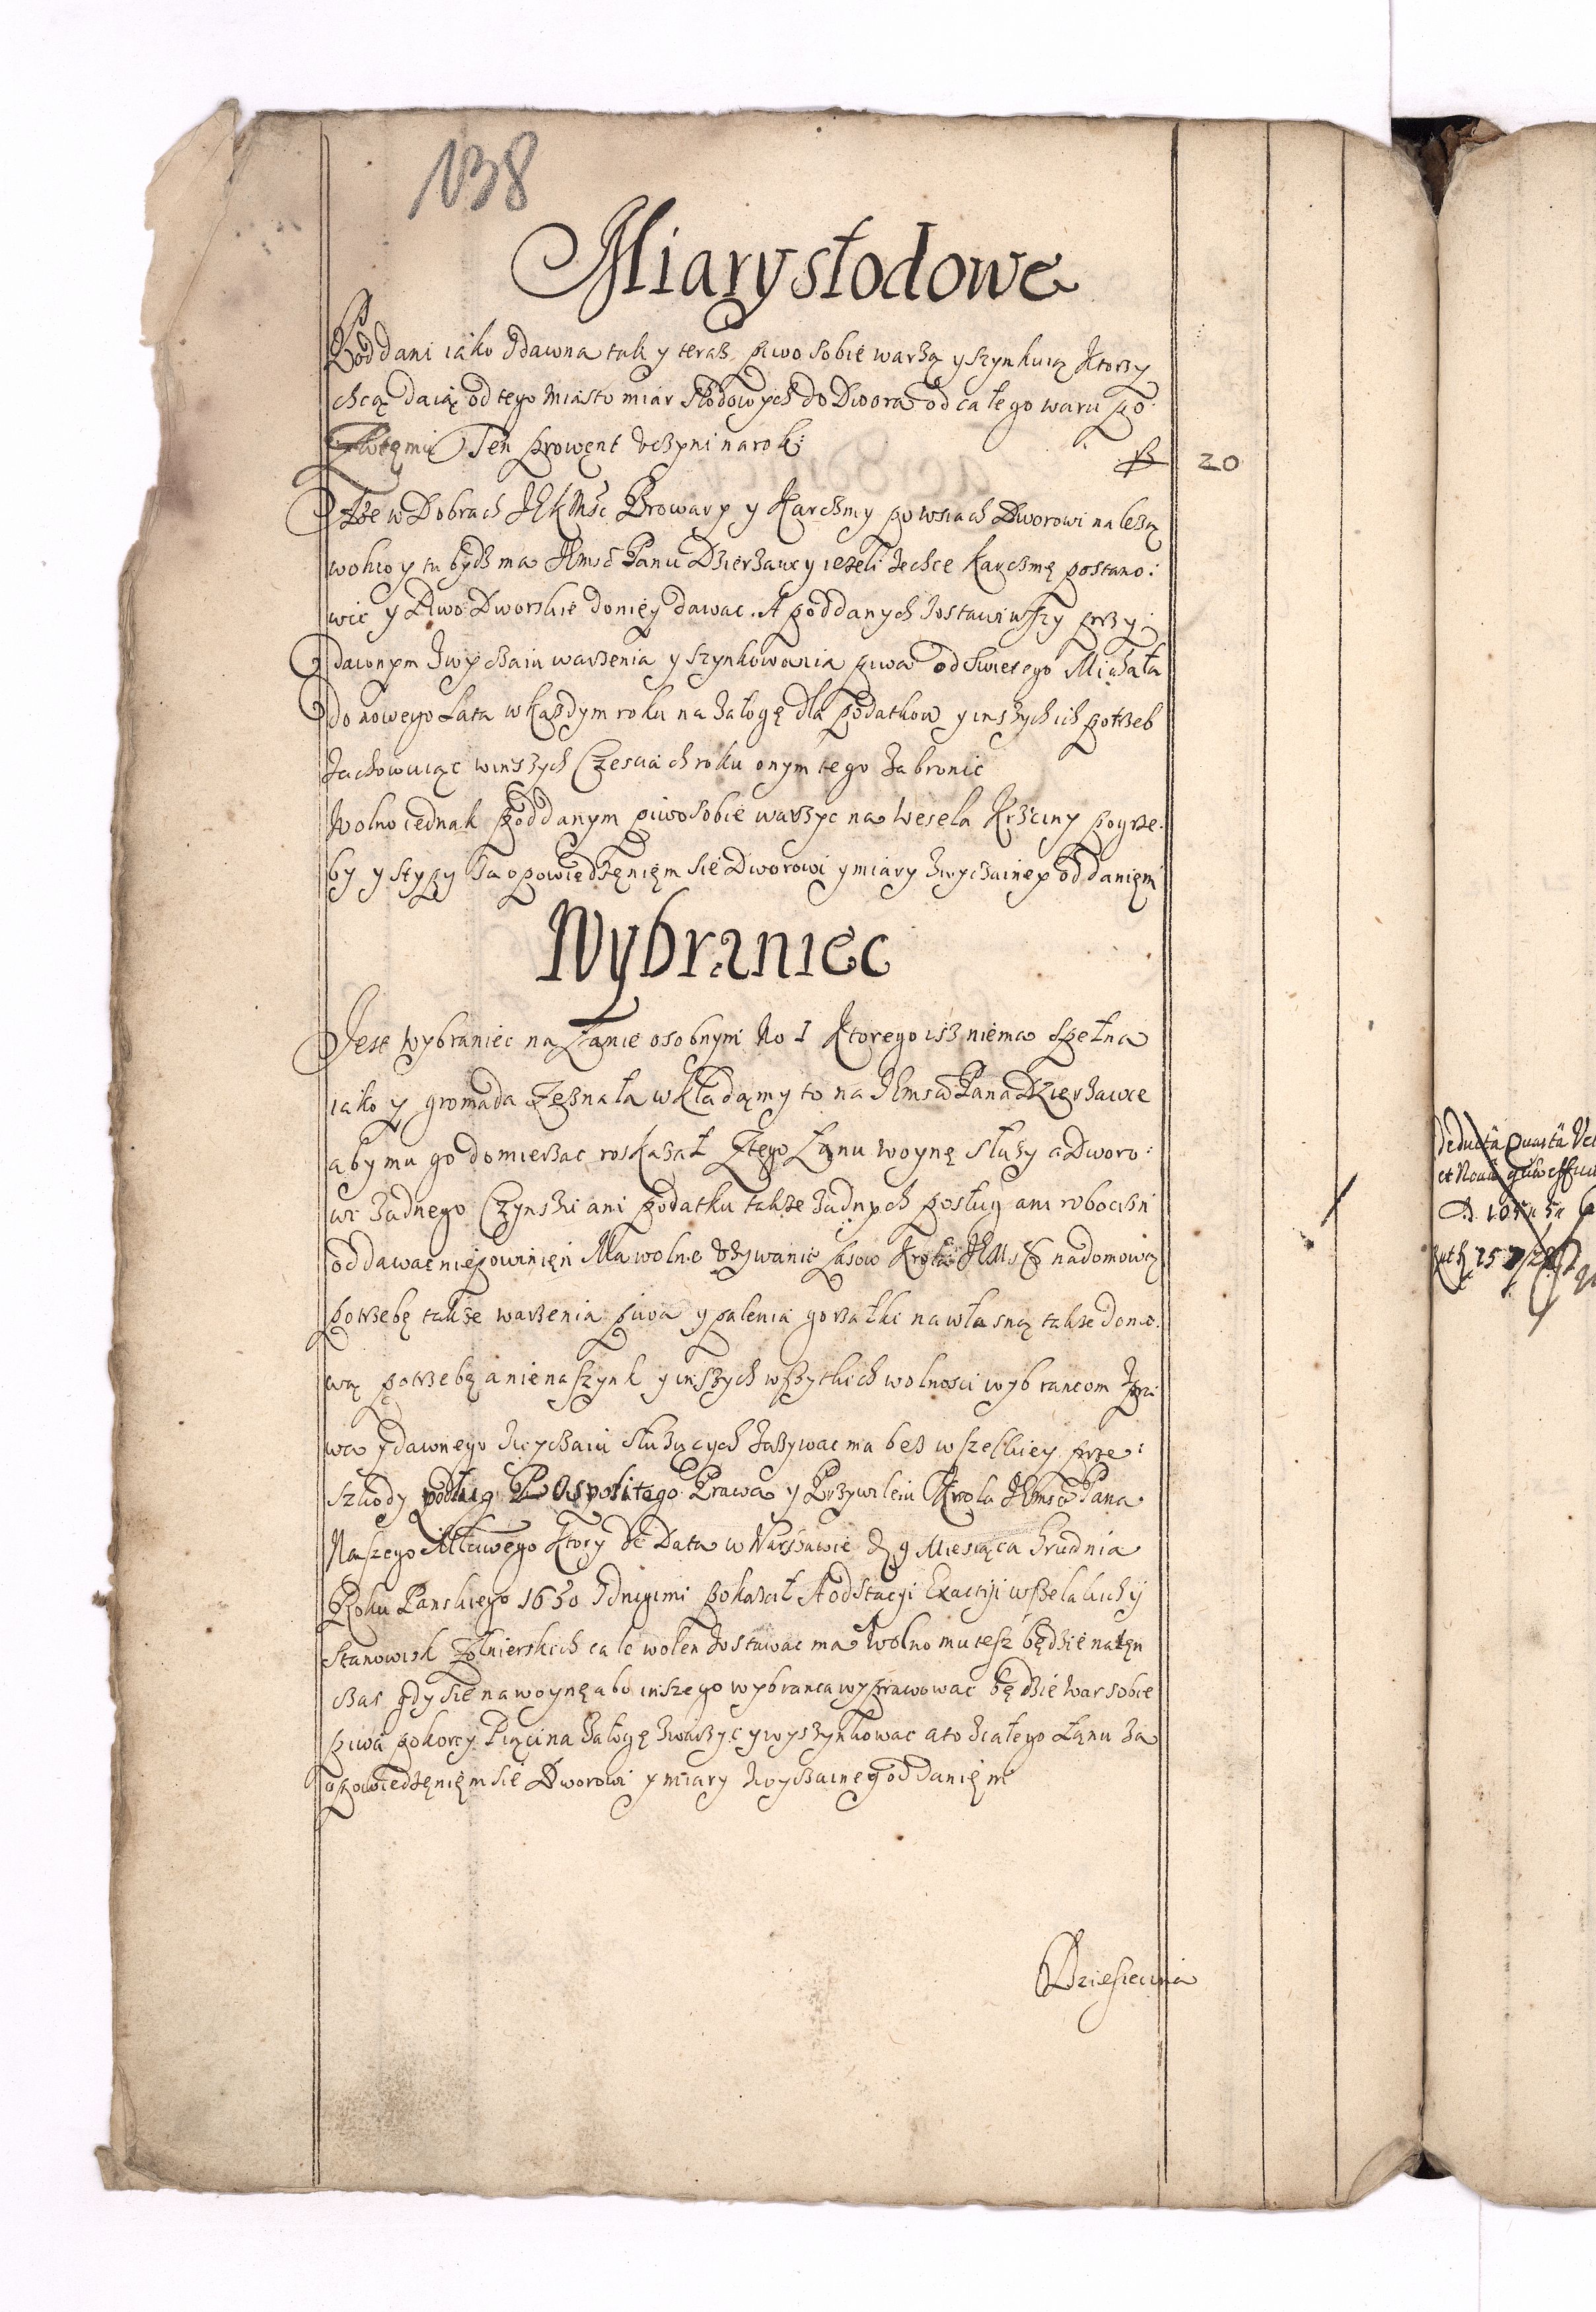 138
Miary słodowe
Poddani iako zdawna tak y teraz piwo sobie warzą y szynkuią Ktorzy
chcą daią od tego miasto miar słodowych do Dwora od całego waru po
Ten prowęnt vczyni na rok: 20
Iże w Dobrach JKMsc Browary y Karczmy po wsiach Dworowi należą
wolno y tu bydz ma Jmsć Panu Dzierżawcy ieżeli zechce Karczmę postano:
wic y Piwo Dworskie do niey dawac. A poddanych zostawiwszy przy
dawnym zwyczaiu warzenia y szynkowania piwa od Swietego Michała
do nowego Lata w każdym roku na załogę dla podatkow y inszych ich potrzeb
zachowuiąc w inszych Częsciach roku onym tego zabronic
Wolno iednak poddanym piwo sobie warzyc na Wesela Krzciny pogrze:
by y stypy za opowiedzęnięm sie Dworowi y miary zwyczainey oddanięm
Wybraniec
Jest wybraniec na Łanie osobnym No 1 Ktorego isz niema spełna
iako y gromada zeznała wkładamy to na JEmsci Pana Dzierżawce
aby mu go domierzac roskazał Z tego Łanu woynę słuzy a Dworo:
wi żadnego Czynszu ani podatku także żadnych posług ani robocizn
oddawac niepowinięn Ma wolne vżywanie Lasow Krola JEMsci na domową
potrzebę także warzenia piwa y palenia gorzałki na własną także domo:
wą potrzebę a nie na szynk y inszych wszytkich wolnosci wybrancom z pra:
wa y dawnego zwyczaiu służących zażywac ma bez wszelkiey prze:
szkody podług Pospolitego Prawa y Przywileiu Krola JEmsci Pana
Naszego Mściwego Ktory de Data w Warszawie D. 9 Miesiąca Grudnia
Roku Panskiego 1630 z drugimi pokazał A od Stacyi Exactiji wszelakich ij
Stanowisk Żołnierskich cale wolen zostawac ma Wolno mu tesz będzie na tęn
czas gdy sie na woynę abo inszego wybranca wyprawowac będzie war sobie
piwa po korcy Pięci na załogę zwarzyc y wyszynkowac a to z całego Łanu za
opowiedzęnięm sie Dworowi y miary zwyczainey oddanięm
Dziesięcina
Deducta Quarta
et Noua